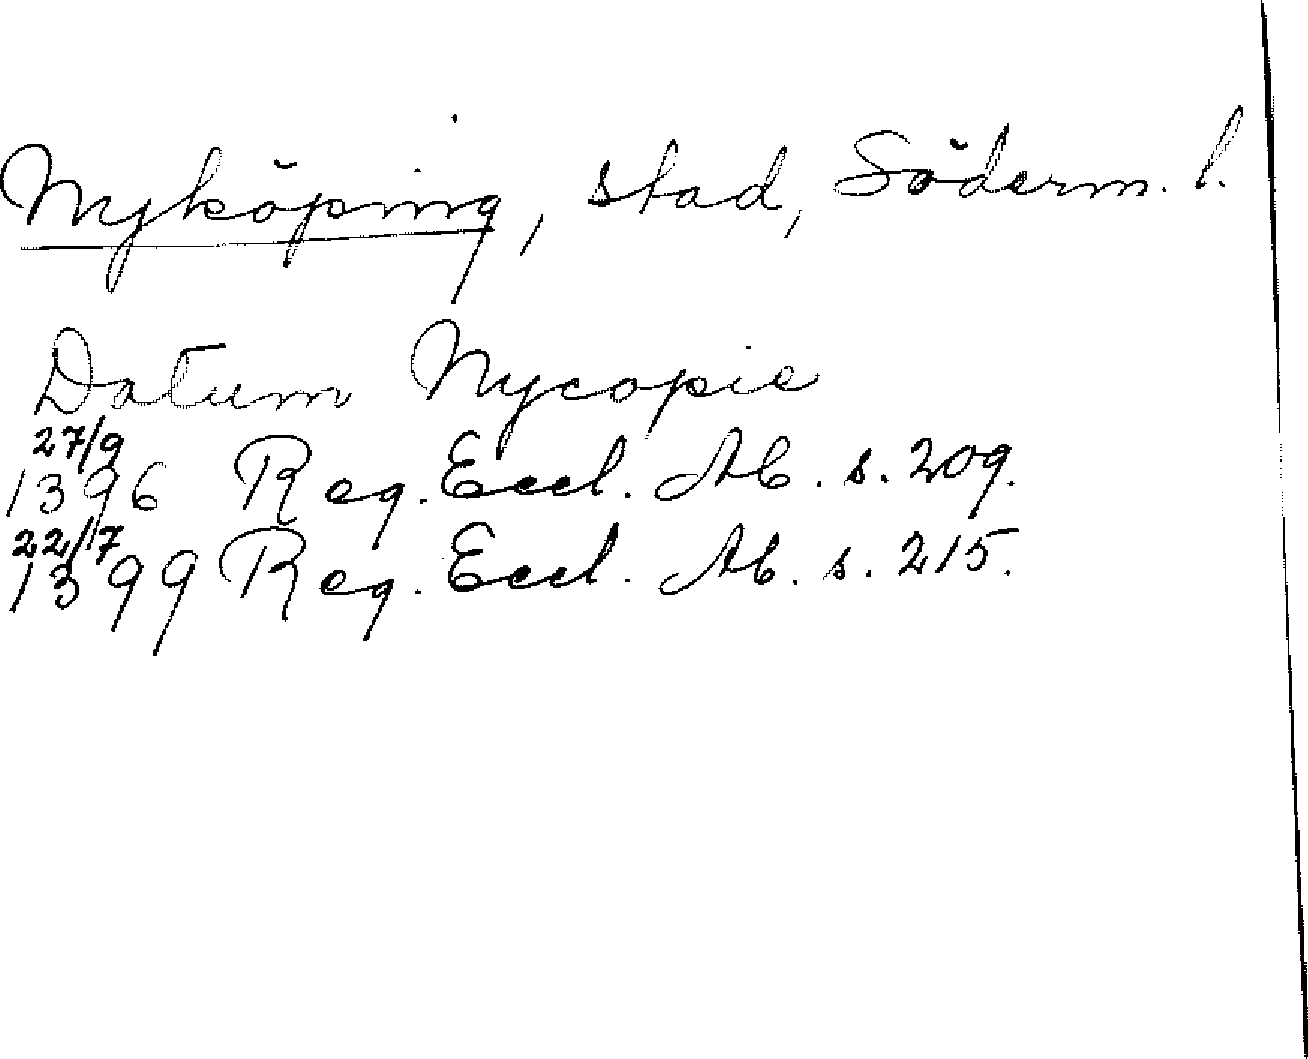 Nyköping, stad, Söderm. l.
Datum Nycopie
27/9
1396 Reg. Eccl. Ab. s. 209.
22/7
1399 Reg. Eccl. Ab. s. 215.